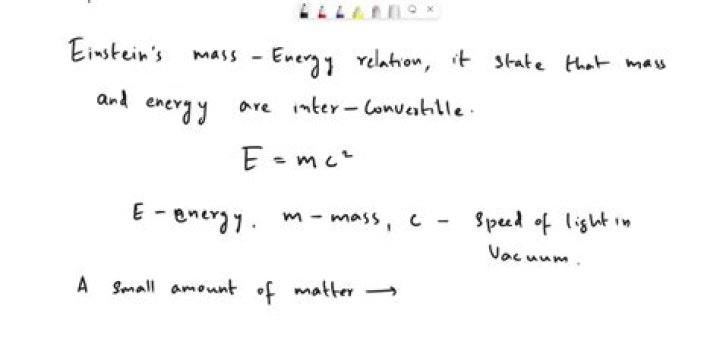 Einstein's mass - Energy relation, it state that mass
and energy are inter - Convertille.
E = mc²
E - energy. m - mass, c - Speed of light in
Vacuum.
A small amount of matter →